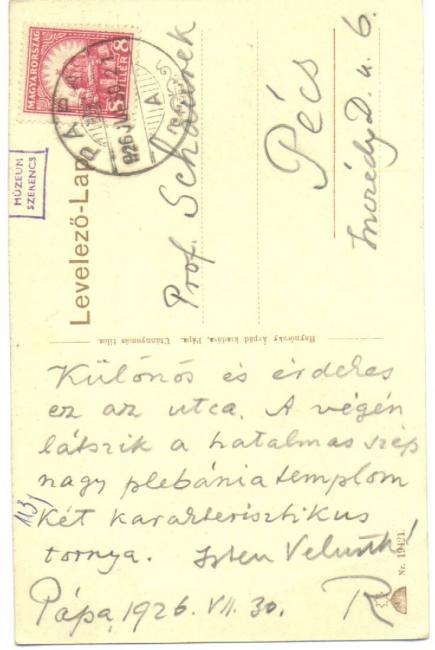 MAGYARORSZÁG
8 FILLÉR 8
PÁPA
926 JUL
MÚZEUM
SZERENCS
Levelező-Lap
Prof.
Pécs
D. u. 6.
Haynórszky Árpád kiadása, Pápa. Utánnyomás tilos.
Különös és érdekes
ez az utca. A végén
látszik a hatalmas szép
nagy plebánia templom
két karakterisztikus
tornya. Isten Velünk!
Pápa, 1926. VII. 30. R
Nr. 19421.